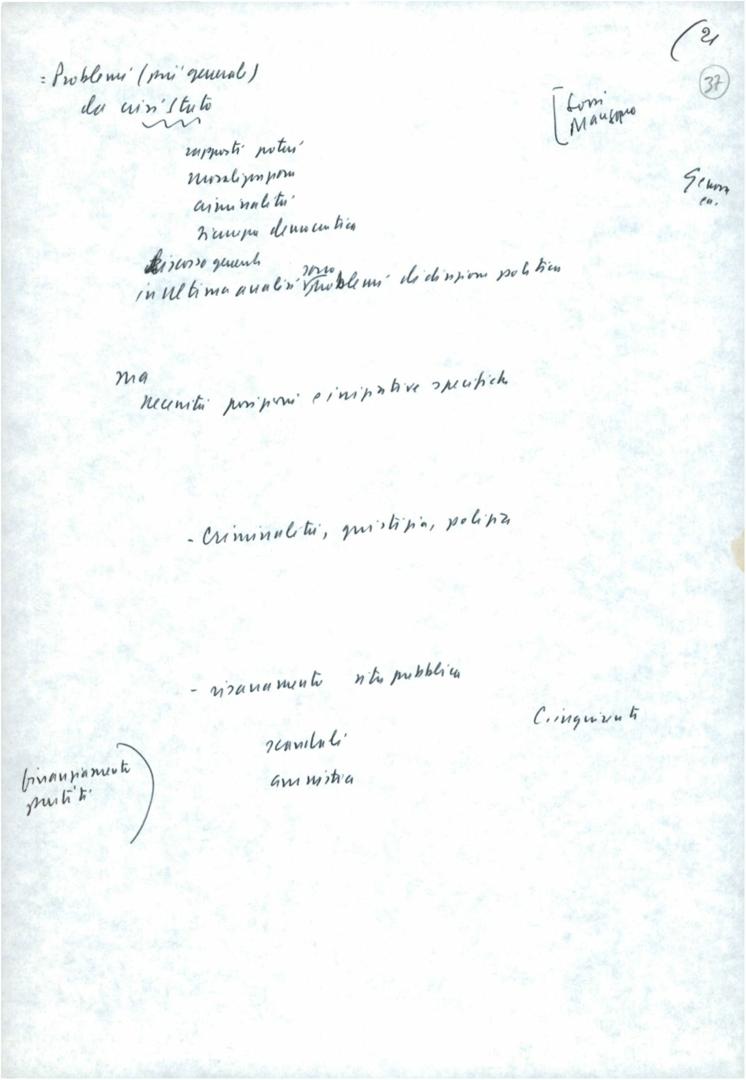 (21
37
= Problemi (più generali)
da crisi Stato
rapporti poteri
moralizzazione
criminalità
ripresa democratica
discorso generale
in ultima analisi sono problemi di direzione politica
ma
necessità posizioni e iniziative specifiche
- Criminalità, giustizia, polizia
- risanamento vita pubblica
C. inquirente
scandali
amnistia
finanziamento
partiti